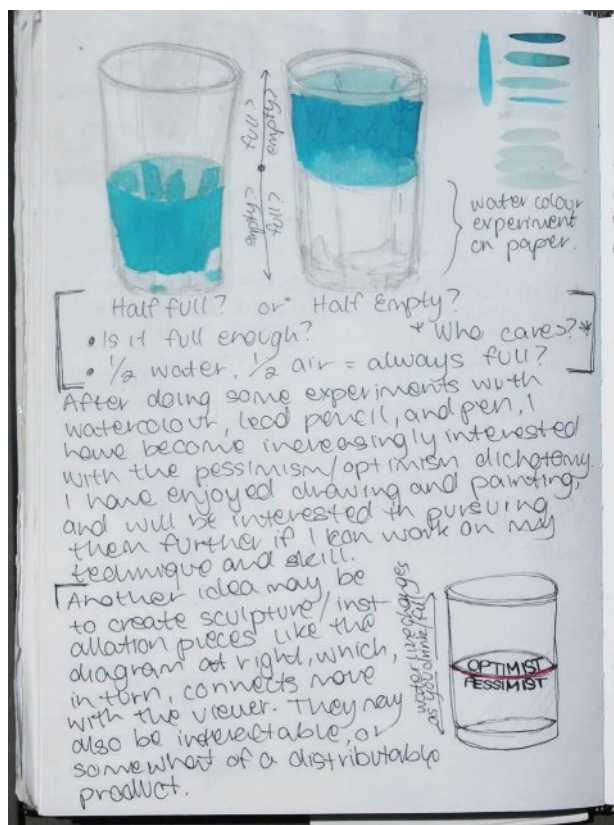 full?
empty?
empty?
full?
water colour
experiment
on paper.
Half full? or Half Empty?
• Is it full enough? * Who cares? *
• 1/2 water, 1/2 air = always full?
After doing some experiments with
watercolour, lead pencil, and pen, I
have become increasingly interested
with the pessimism/optimism dichotomy.
I have enjoyed drawing and painting,
and will be interested in pursuing
them further if I can work on my
technique and skill.
Another idea may be
to create sculpture/inst
allation pieces like the
diagram at right, which,
in turn, connects more
with the viewer. They may
also be interactable, or
somewhat of a distributable
product.
water line changes
as you drink/fill
OPTIMIST
PESSIMIST